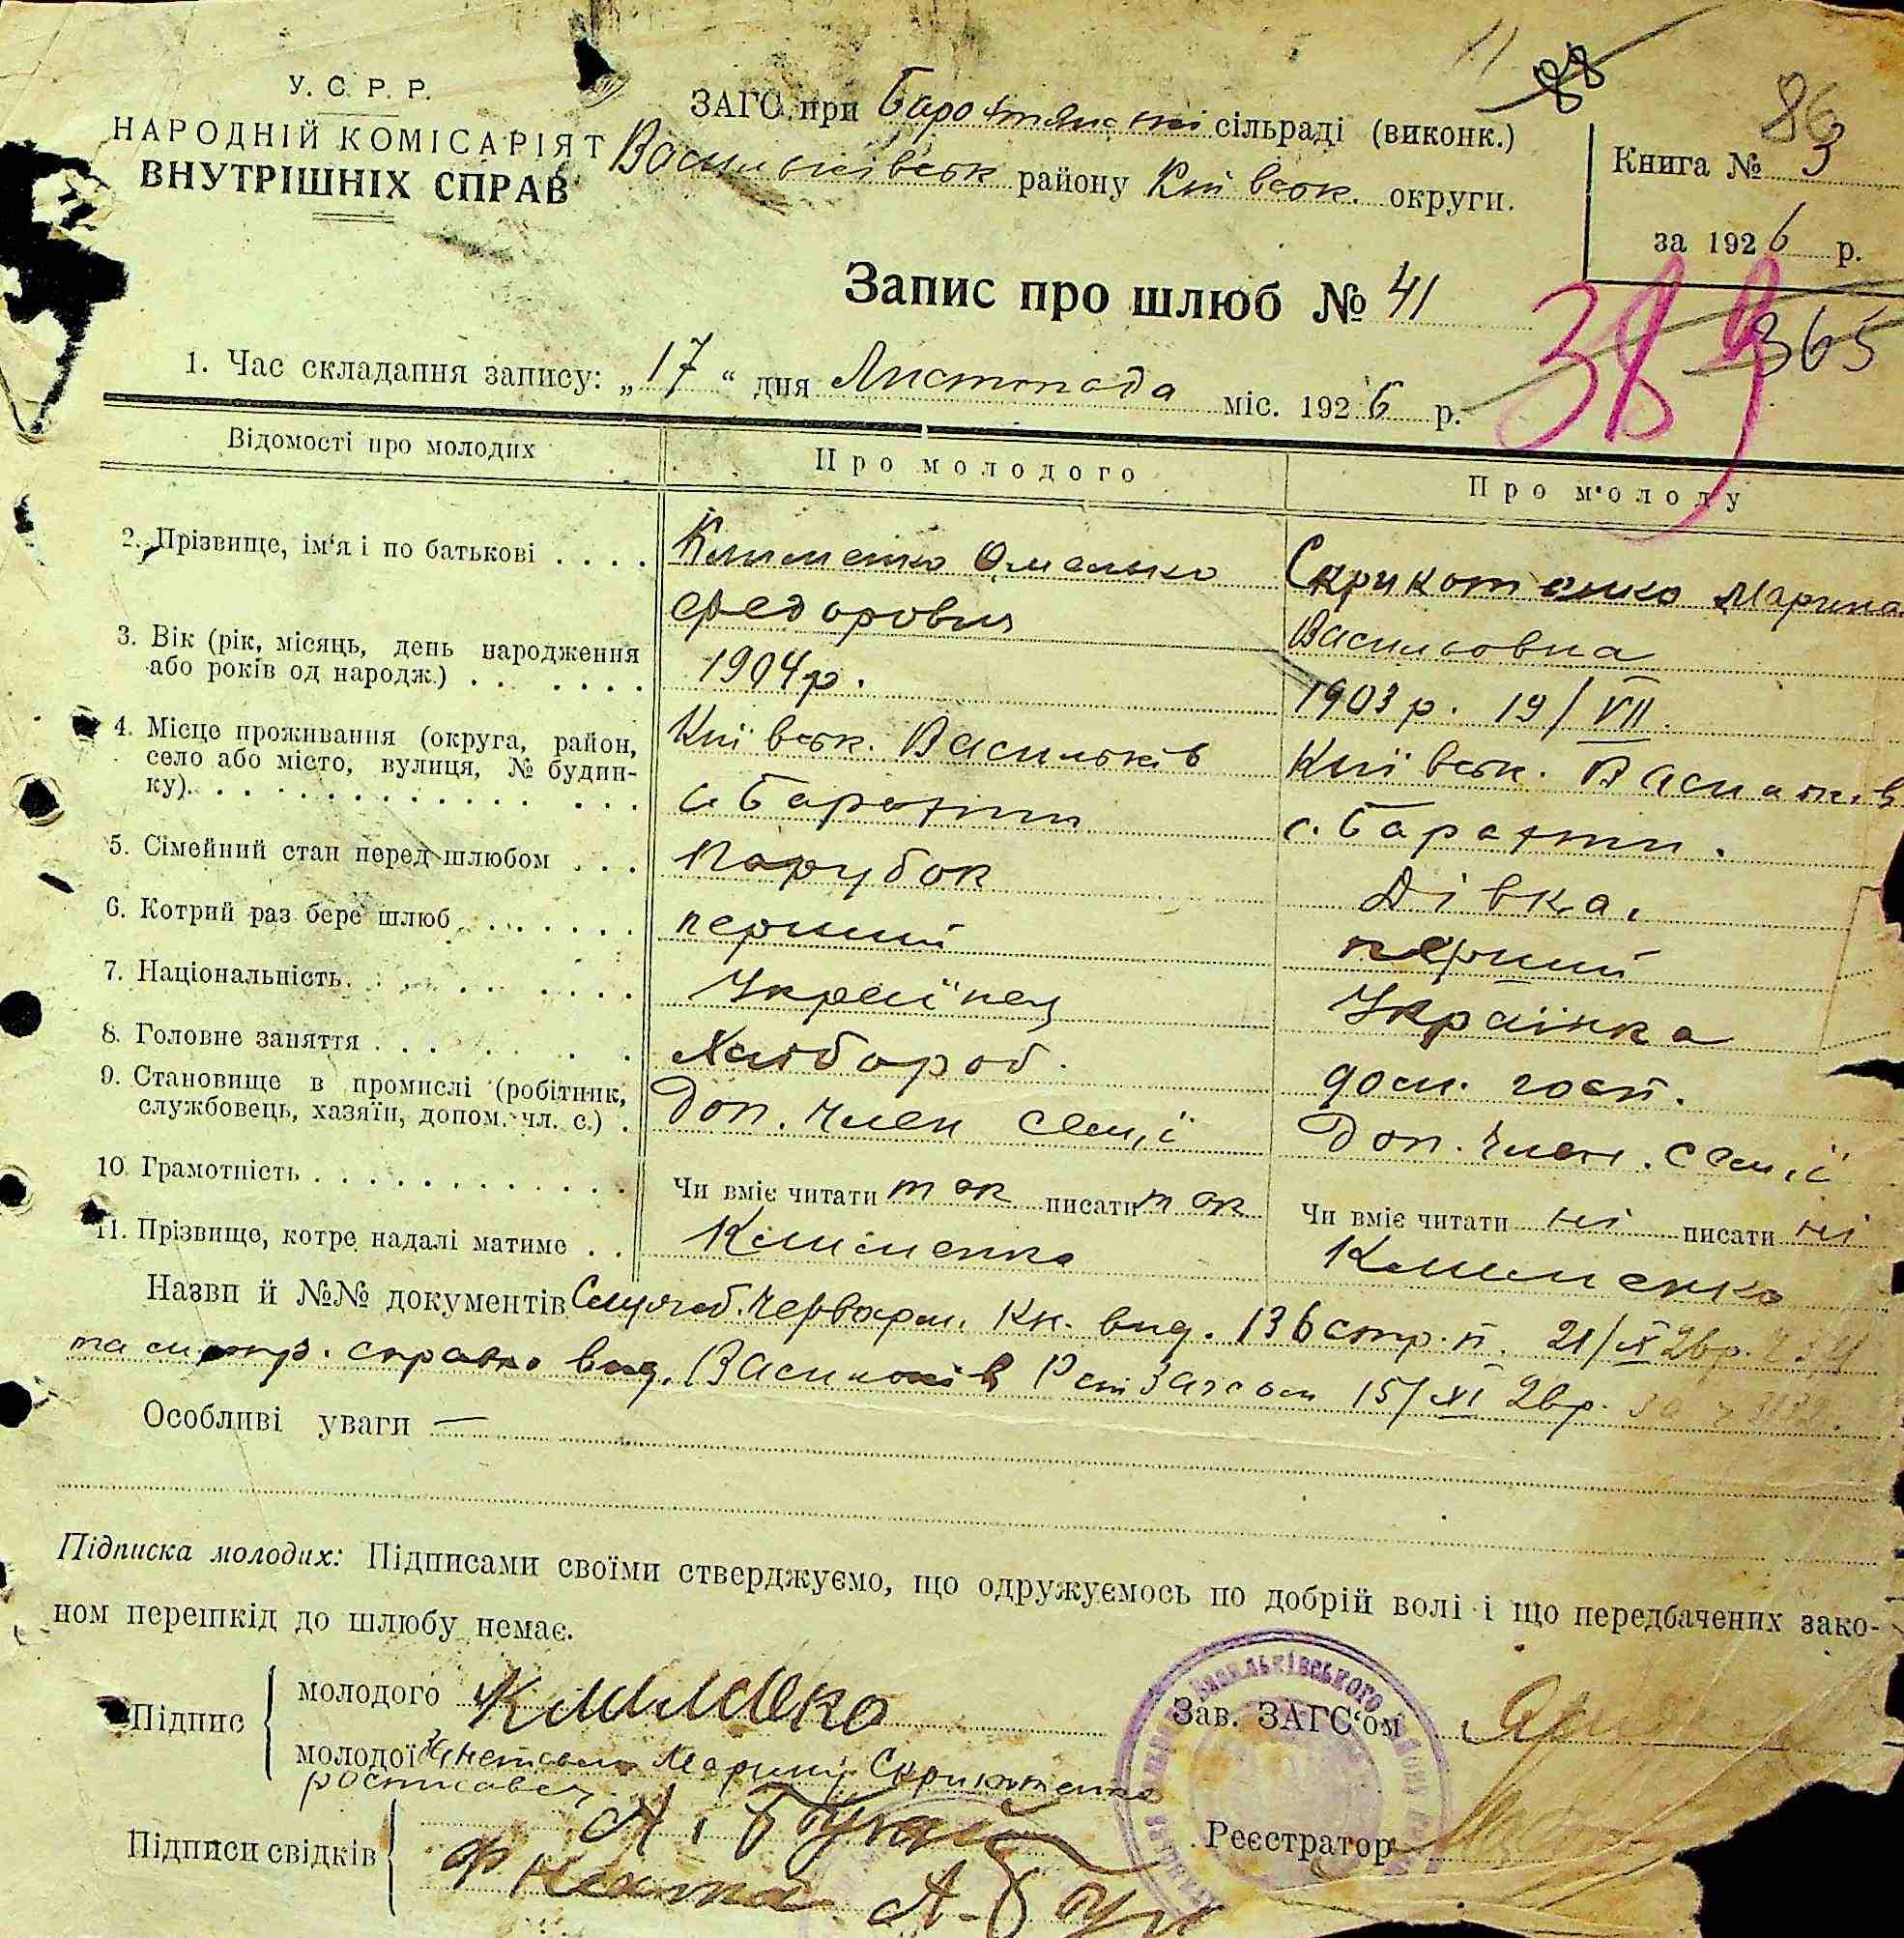 У. С. Р. Р.
НАРОДНІЙ КОМІСАРІЯТ
ВНУТРІШНІХ СПРАВ
ЗАГС при сільраді (виконк.)
Васильківськ району Київськ. округи.
88
86
Книга № 3
за 1926 р.
Запис про шлюб № 41
389
365
1. Час складання запису: „17“ дня Листопада міс. 1926 р.
Відомості про молодих Про молодого Про молоду
2. Прізвище, ім'я і по батькові . . . . Клименко Омелько Скрикотенко Марина
Федорович Васильовна
3. Вік (рік, місяць, день народження
або років од народж.) . . . . . . . 1904 р. 1903 р. 19/VII.
4. Місце проживання (округа, район, Київськ. Васильків Київськ. Васильків
село або місто, вулиця, № будин-
ку). . . . . . . . . . . . . . . . с. Барахти с. Барахти.
5. Сімейний стан перед шлюбом . . . Парубок Дівка.
6. Котрий раз бере шлюб . . . . . . перший перший
7. Національність. . . . . . . . . Українец Українка
8. Головне заняття . . . . . . . Хлібороб. дом. госп.
9. Становище в промислі (робітник,
службовець, хазяїн, допом. чл. с.) . Доп. член семії Доп. член. семії
10. Грамотність . . . . . . . . . . . . Чи вміє читати так писати так Чи вміє читати ні писати ні
11. Прізвище, котре надалі матиме . . Клименко Клименко
Назви й №№ документів Кн. вид. 136 стр. п. 21/IX 26р.
та справка вид. Васильків Загсом 15/XI 26р. за
Особливі уваги —
Підписка молодих: Підписами своїми стверджуємо, що одружуємось по добрій волі і що передбачених зако-
ном перешкід до шлюбу немає.
Підпис
молодого Клименко
молодої Марину Скрикотенко
Зав. ЗАГС'ом
Підписи свідків
Реєстратор